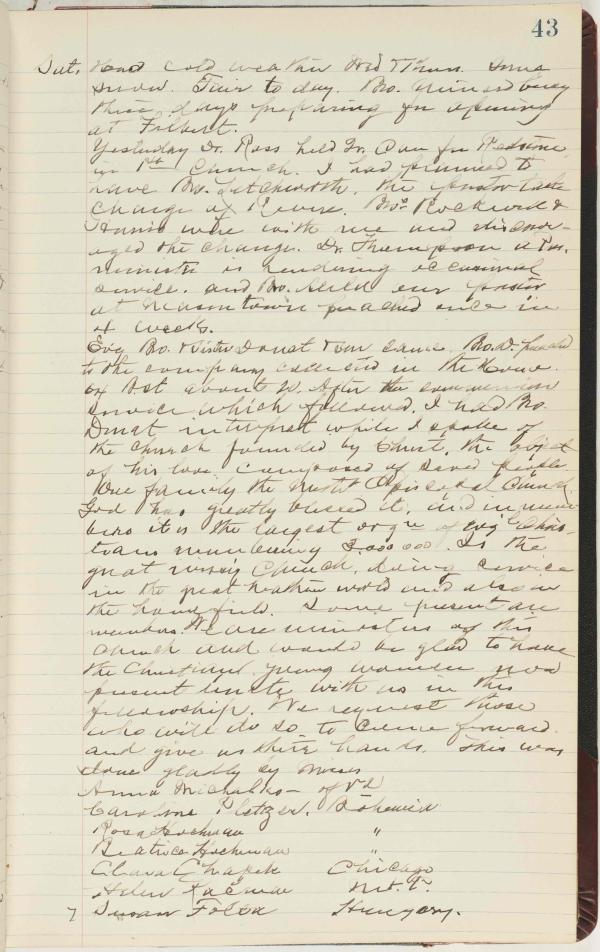 43
Sat. Had cold weather Wed & Thurs. Some
snow. Fair to day. Bro. busy
these days preparing for opening
at Filbert.
Yesterday Dr. Ross held Qr. Con for
in 1st Church. I had planned to
have Bro. Letchworth, the pastor take
charge of Revere. Bros Rockwood &
were with me and discour-
aged the change. Dr. Thompson a Pres.
minister is rendering occasional
service. and Bro. our pastor
at Masontown preached once in
4 weeks.
Evg Bro. & Sister Donat & son came. Bro. D. preached
to the company collected in the House
of Dst about 20. After the communion
service which followed, I had Bro.
Donat interpret while I spoke of
the church founded by Christ, the object
of his love composed of saved people
One family the Meth Episcopal Church
God has greatly blessed it, and in mem
bers it is the largest of Evg'l Chris-
tians numbering 3,000,000. Is the
great missy Church, doing service
in the great heathen world and also in
the home field. Some present are
members. We are ministers of this
church and would be glad to have
the Christian young women now
present unite with us in this
fellowship. We request those
who will do so to come forward
and give us their hands. This was
done gladly by Misses
Anna Michalko – of
Caroline Pletzer. Bohemia
Rosa Hochman
Beatrice Hochman "
Clara Chapek Chicago
Helen
7 Susan Hungary.